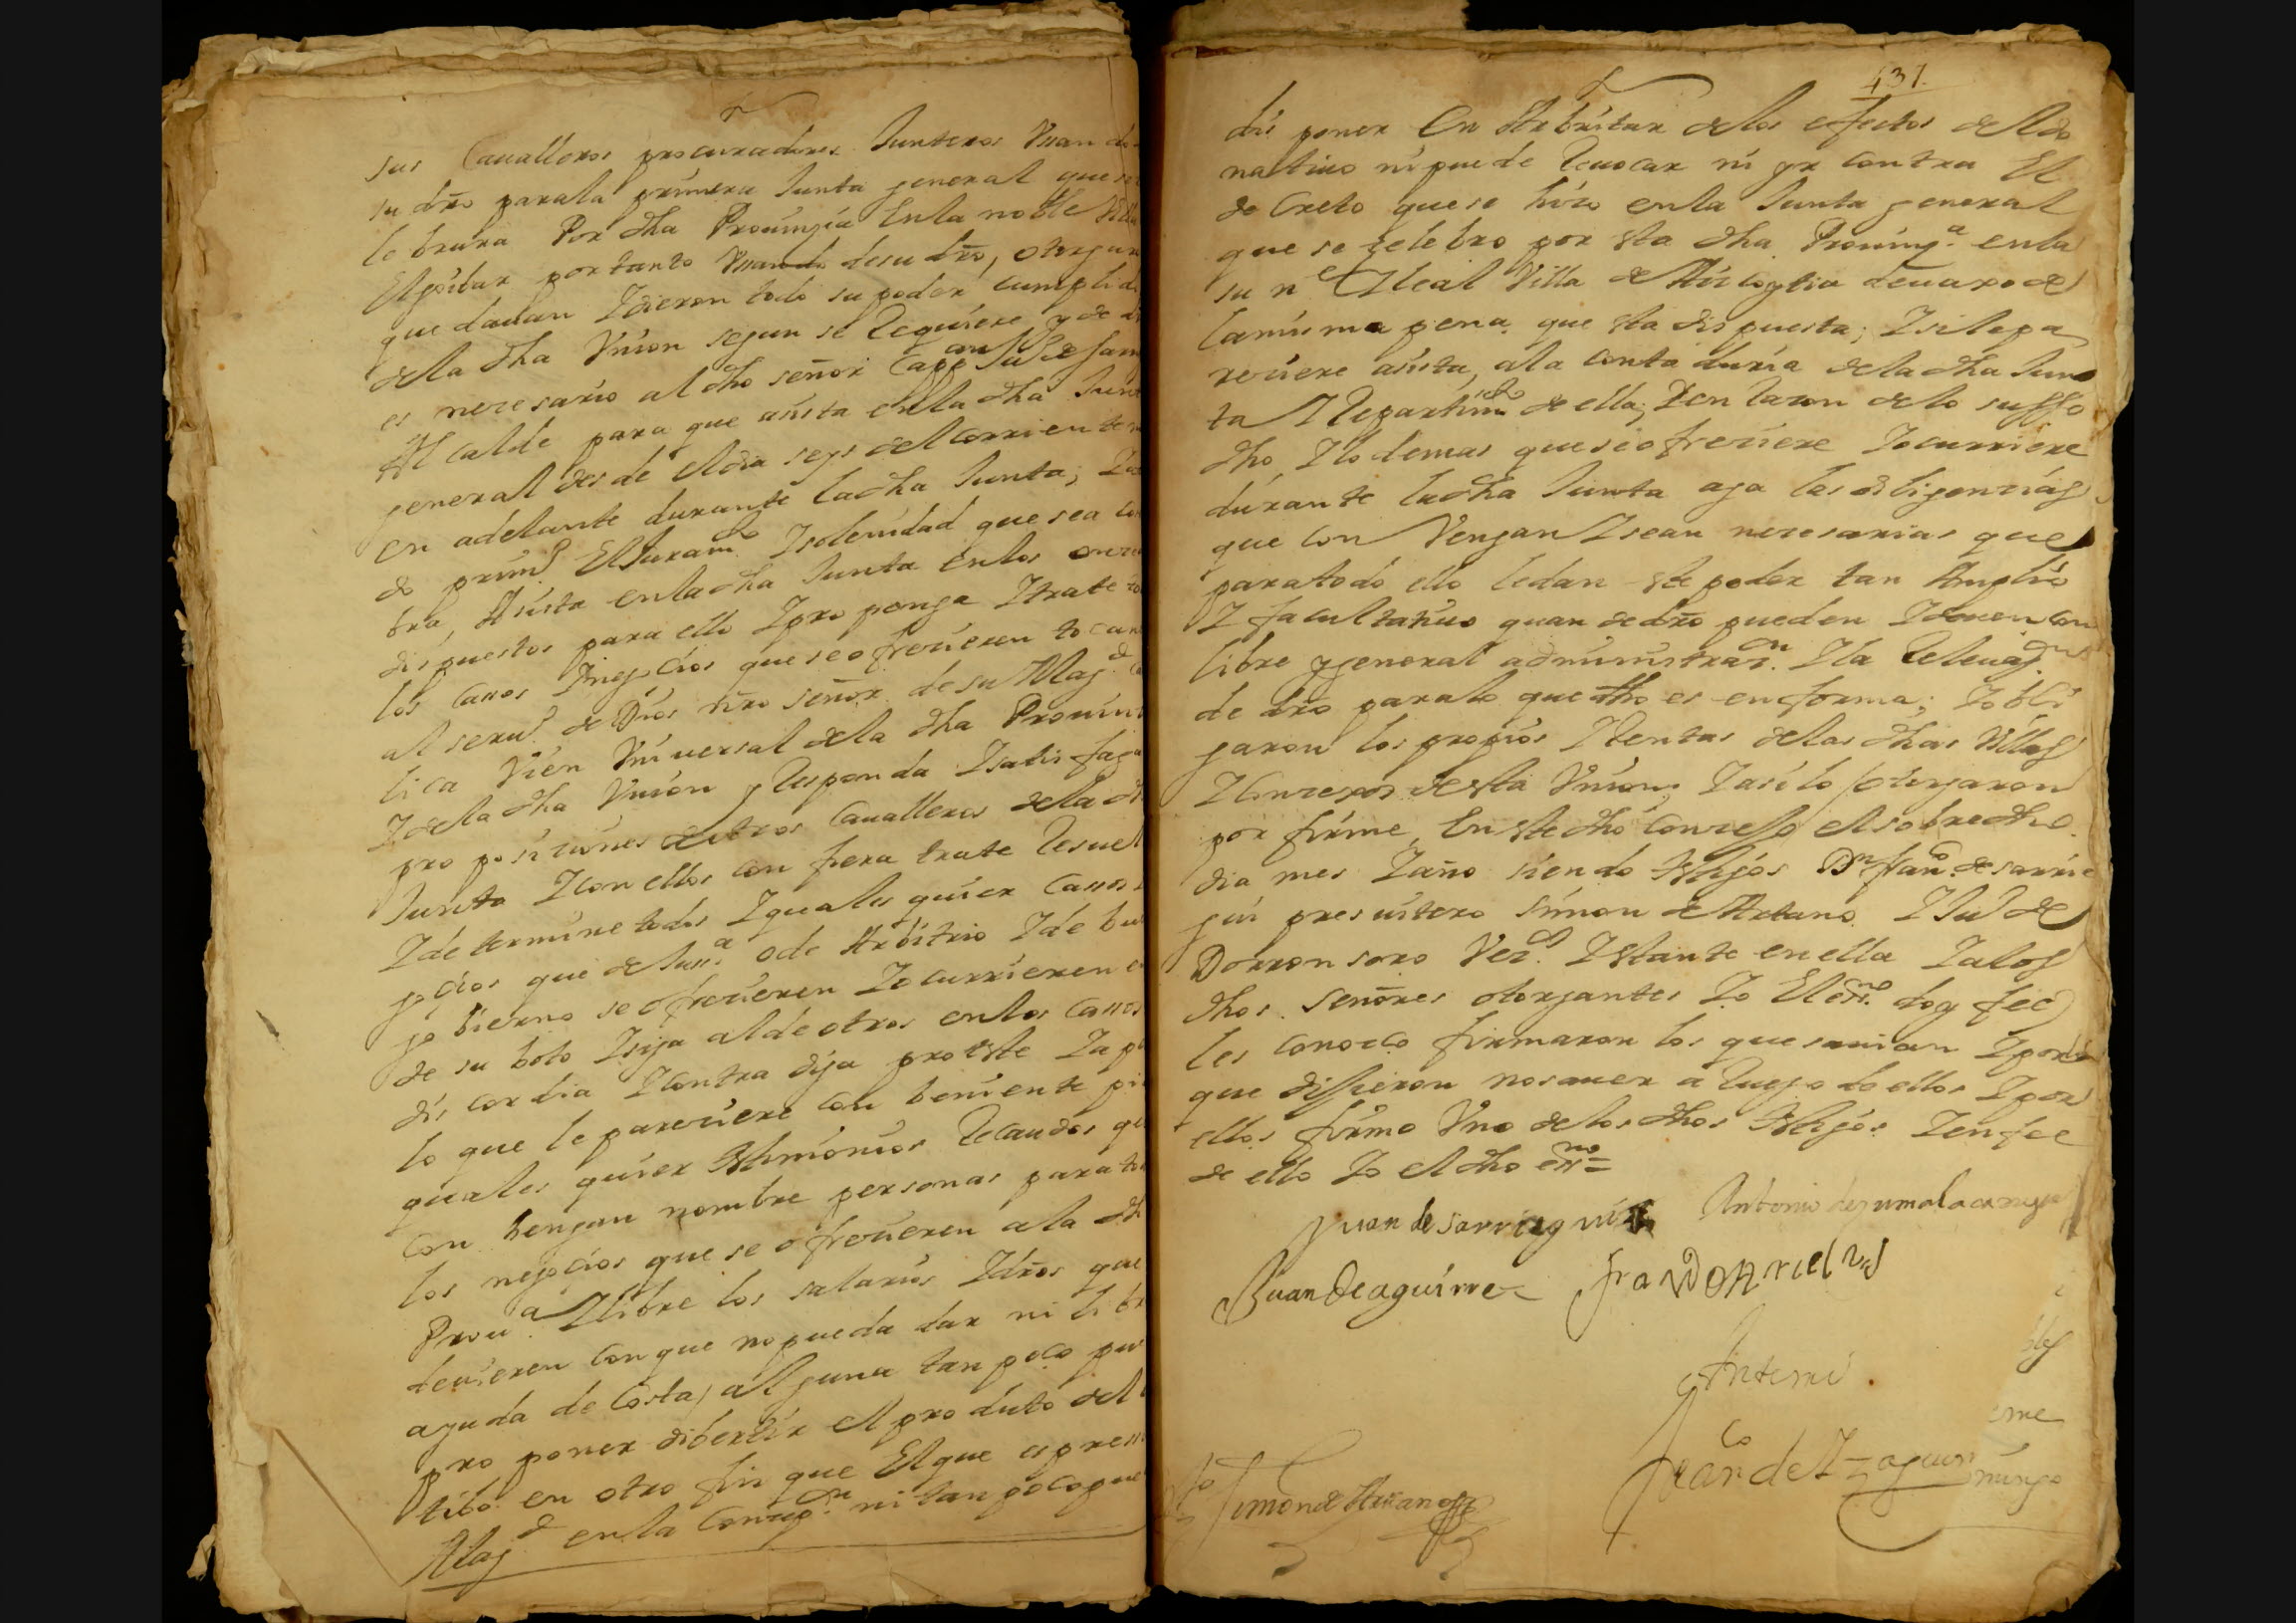 sus Caualleros procuradores Junteros Vsando
su dro parala primera Junta general que se
lebrara Por dha Prouinçia Enla noble Villa
Elgoibar portanto Vsando desu dro, otorgar
que dauan Idieron todo su poder cumplido
dela dha Vnion segun se Requiere y de
es necesario al dho señor
Alcalde para que asista enla dha Junt
general desde eldia seys del corriente
en adelante durante ladha Junta;
do prim.o ElJuram.to Isolenidad que sea
bra, Asista enladha Junta enlos
dispuestos para ello Ipro ponga Itrate to
los Casos Inegoçios quese ofreçieren tocan
al seru.o de Dios nro señor de su Mag.d
lica Vien Vniuersal dela dha Prouin
Idela dha Vnion y Responda Isatisfaga
pro posiciones deotros Caualleros dela
Junta Icon ellos con fiera trate Resuel
Ide termine todos Iquales quier Casos
goçios que de Jus.a o de Arbitrio Ide bu
go bierno se ofreçieren Iocurrieren
de su boto Isiga alde otros enlos Casos
dis cordia Icontra diga proteste Iap
lo que le pareçiere con beniente pi
quales quier testimonios Recaudos qu
con bengan nombre personas para to
los negoçios que se ofreçieren ala dh
Prou.a Ilibre los salarios Idros que
deuieren con que no pueda dar ni libr
ayuda de Costa, alguna tan poco pu
pro poner dibertir el produto del
tibo en otro fin que El que espres
Mag.d en la Conçeç.n ni tan poco pue
437.
dri poner En Arbitrar delos efectos del do
natiuo ni puede Reuocar ni yr contra El
de Creto quese hizo enla Junta general
que se zelebro por sta dha Prouinç.a enla
su n.e Ileal Villa de Azcoytia deuaxo de
lamisma pena que sta dispuesta; Isilepa
reçiere asista, ala contaduria dela dha Jun
ta I Repartim.to de ella; Ien Razon delo suso
dho, Ilo demas quese ofreçiere Iocurriere
durante ladha Junta aga las diligençias
que con Vengan Isean necesarias que
paratodo ello ledan ste poder tan Amplio
I facultatiuo quan dedro pueden Ideuen con
libre ygeneral administraz.n Ila Releuaç.on
de dro paralo que dho es enforma; Iobli
garon los propios I Rentas delas dhas Villas
Iconcexos desta Vnion; Iasi lo otorgaron
por firme, En ste dho Conçexo el sobredho
dia mes Iaño siendo testigos D.n fran.co de sarrie
gui presuitero Simon de Artano I Ju.o de
Dorronsoro Vez.os Istante enella Ialos
dhos señores otorgantes Io El ess.no doy fee
les conozco firmaron los que sauian Ipor los
que dixieron nosauer a Ruego de ellos Ipor
ellos firmo Vno delos dhos testigos Ienfee
de ello Io el dho ess.no =
Juan de sarriegui Antonio de zumalacarregui
Juan de aguirre
Ante mi
Simon de Artano Fran.co de Izaguirre